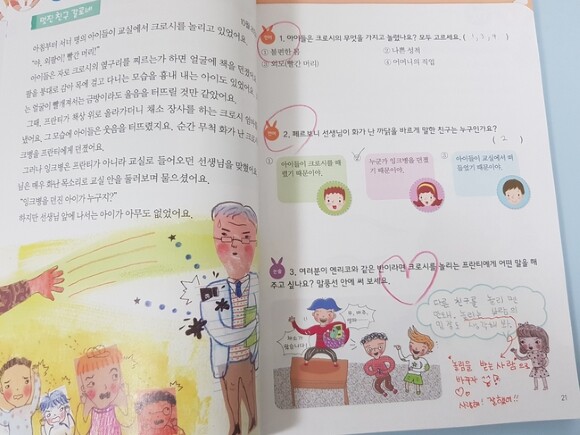 멋진 친구 갈로네
아침부터 서너 명의 아이들이 교실에서 크로시를 놀리고 있었어요.
"야, 외팔이! 빨간 머리!"
아이들은 자로 크로시의 옆구리를 찌르는가 하면 얼굴에 책을 던졌어요.
팔을 붕대로 감아 목에 걸고 다니는 모습을 흉내 내는 아이도 있었어요.
는 얼굴이 빨개져서는 금방이라도 울음을 터뜨릴 것만 같았어요.
그때, 프란티가 책상 위로 올라가더니 채소 장사를 하는 크로시 엄마
냈어요. 그 모습에 아이들은 웃음을 터뜨렸지요. 순간 무척 화가 난 크로
크병을 프란티에게 던졌어요.
그러나 잉크병은 프란티가 아니라 교실로 들어오던 선생님을 맞혔어요.
님은 매우 화난 목소리로 교실 안을 둘러보며 물으셨어요.
"잉크병을 던진 아이가 누구지?"
하지만 선생님 앞에 나서는 아이가 아무도 없었어요.
1. 아이들은 크로시의 무엇을 가지고 놀렸나요? 모두 고르세요.
① 불편한 몸
② 나쁜 성적
③ 외모(빨간 머리)
④ 어머니의 직업
2. 페르보니 선생님이 화가 난 까닭을 바르게 말한 친구는 누구인가요?
( 2 )
① 아이들이 크로시를 때렸기 때문이야.
② 누군가 잉크병을 던졌기 때문이야.
③ 아이들이 교실에서 떠들었기 때문이야.
3. 여러분이 엔리코와 같은 반이라면 크로시를 놀리는 프란티에게 어떤 말을 해
주고 싶나요? 말풍선 안에 써 보세요.
다른 친구를 놀리면
안돼.
놀림을 받는 사람으로
바꾸자
21